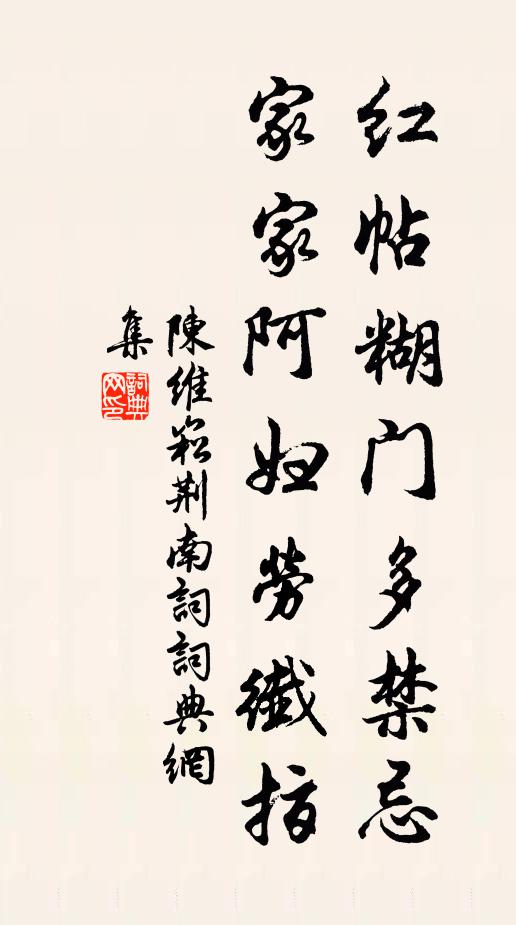 红帖糊门多禁忌
家家阿妇劳纖指
陳維崧荆南詞詞典網
集
詞典网印